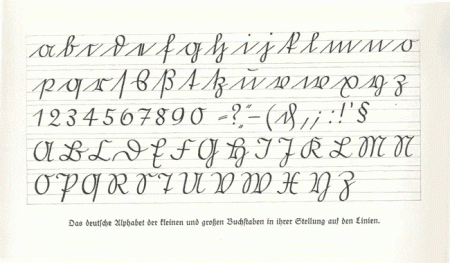 a b c d e f g h i j k l m n o
p q r ſ s ß t tz u v w x y z
1 2 3 4 5 6 7 8 9 0 -?„“–(&,;:!'§
A B C D E F G H I J K L M N
O P Q R S T U V W X Y Z
Das deutſche Alphabet der kleinen und großen Buchſtaben in ihrer Stellung auf den Linien.